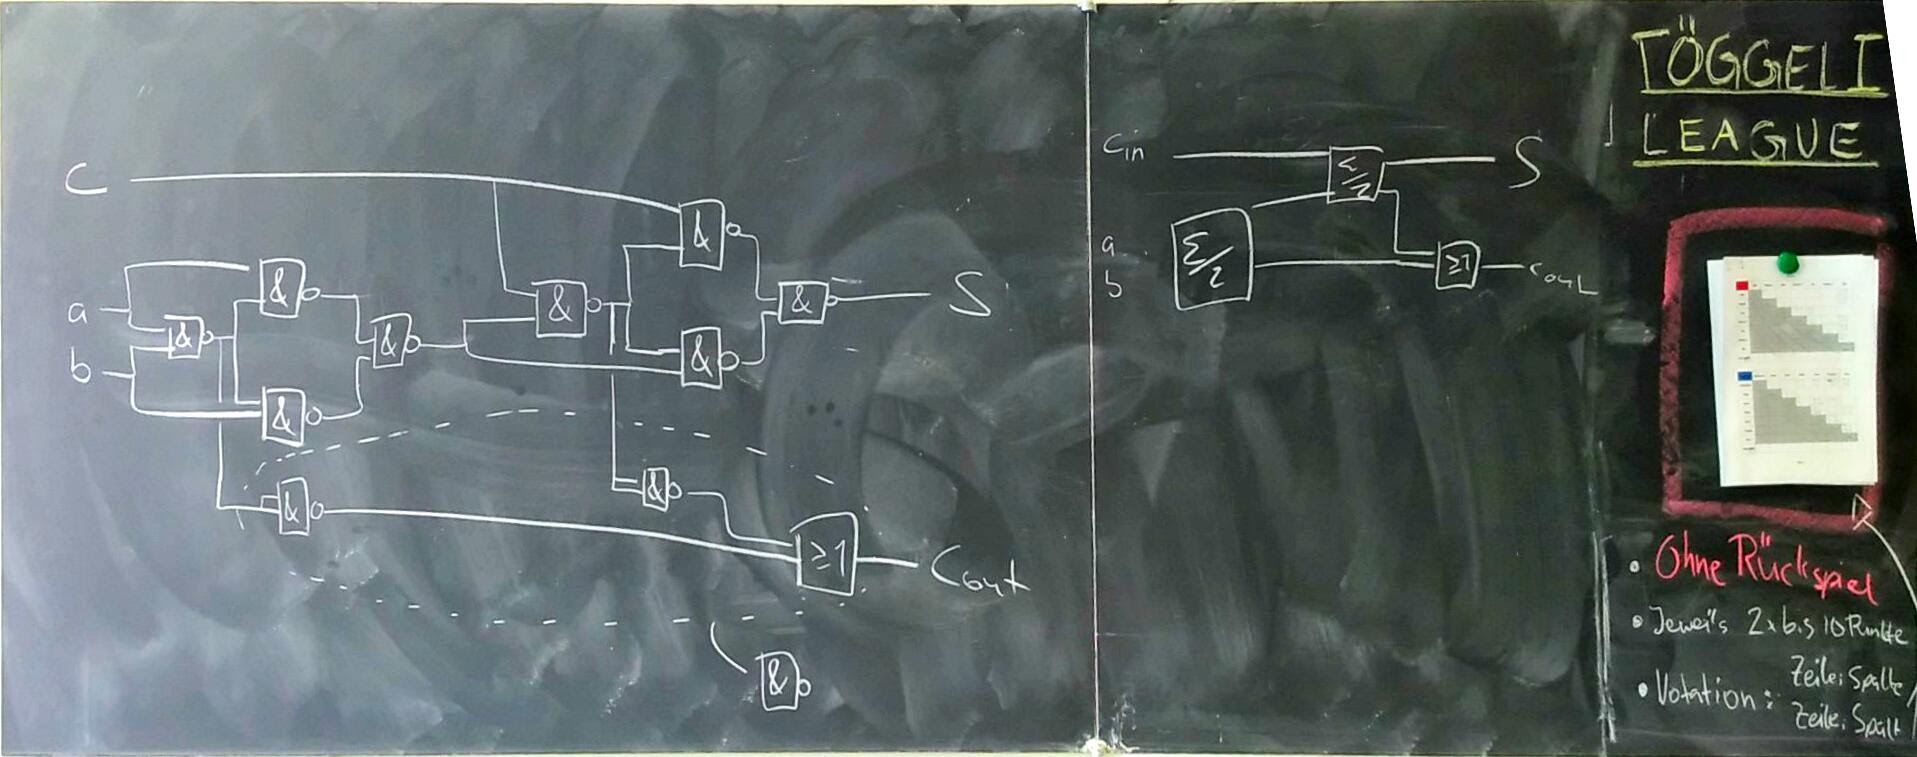 C
a
b
&
&
&
&
&
&
&
&
&
&
≥1
S
Cout
&
Cin
a
b
Σ/2
Σ/2
≥1
S
Cout
TÖGGELI
LEAGUE
• Ohne Rückspiel
• Jeweils 2x bis 10 Punkte
• Votation: Zeile: Spalte
Zeile: Spalt